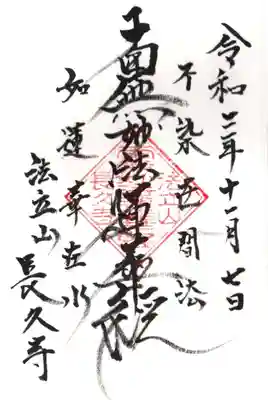 令和二年十一月七日
不染世間法
南無妙法蓮華経
如蓮華在水
法立山
長久寺